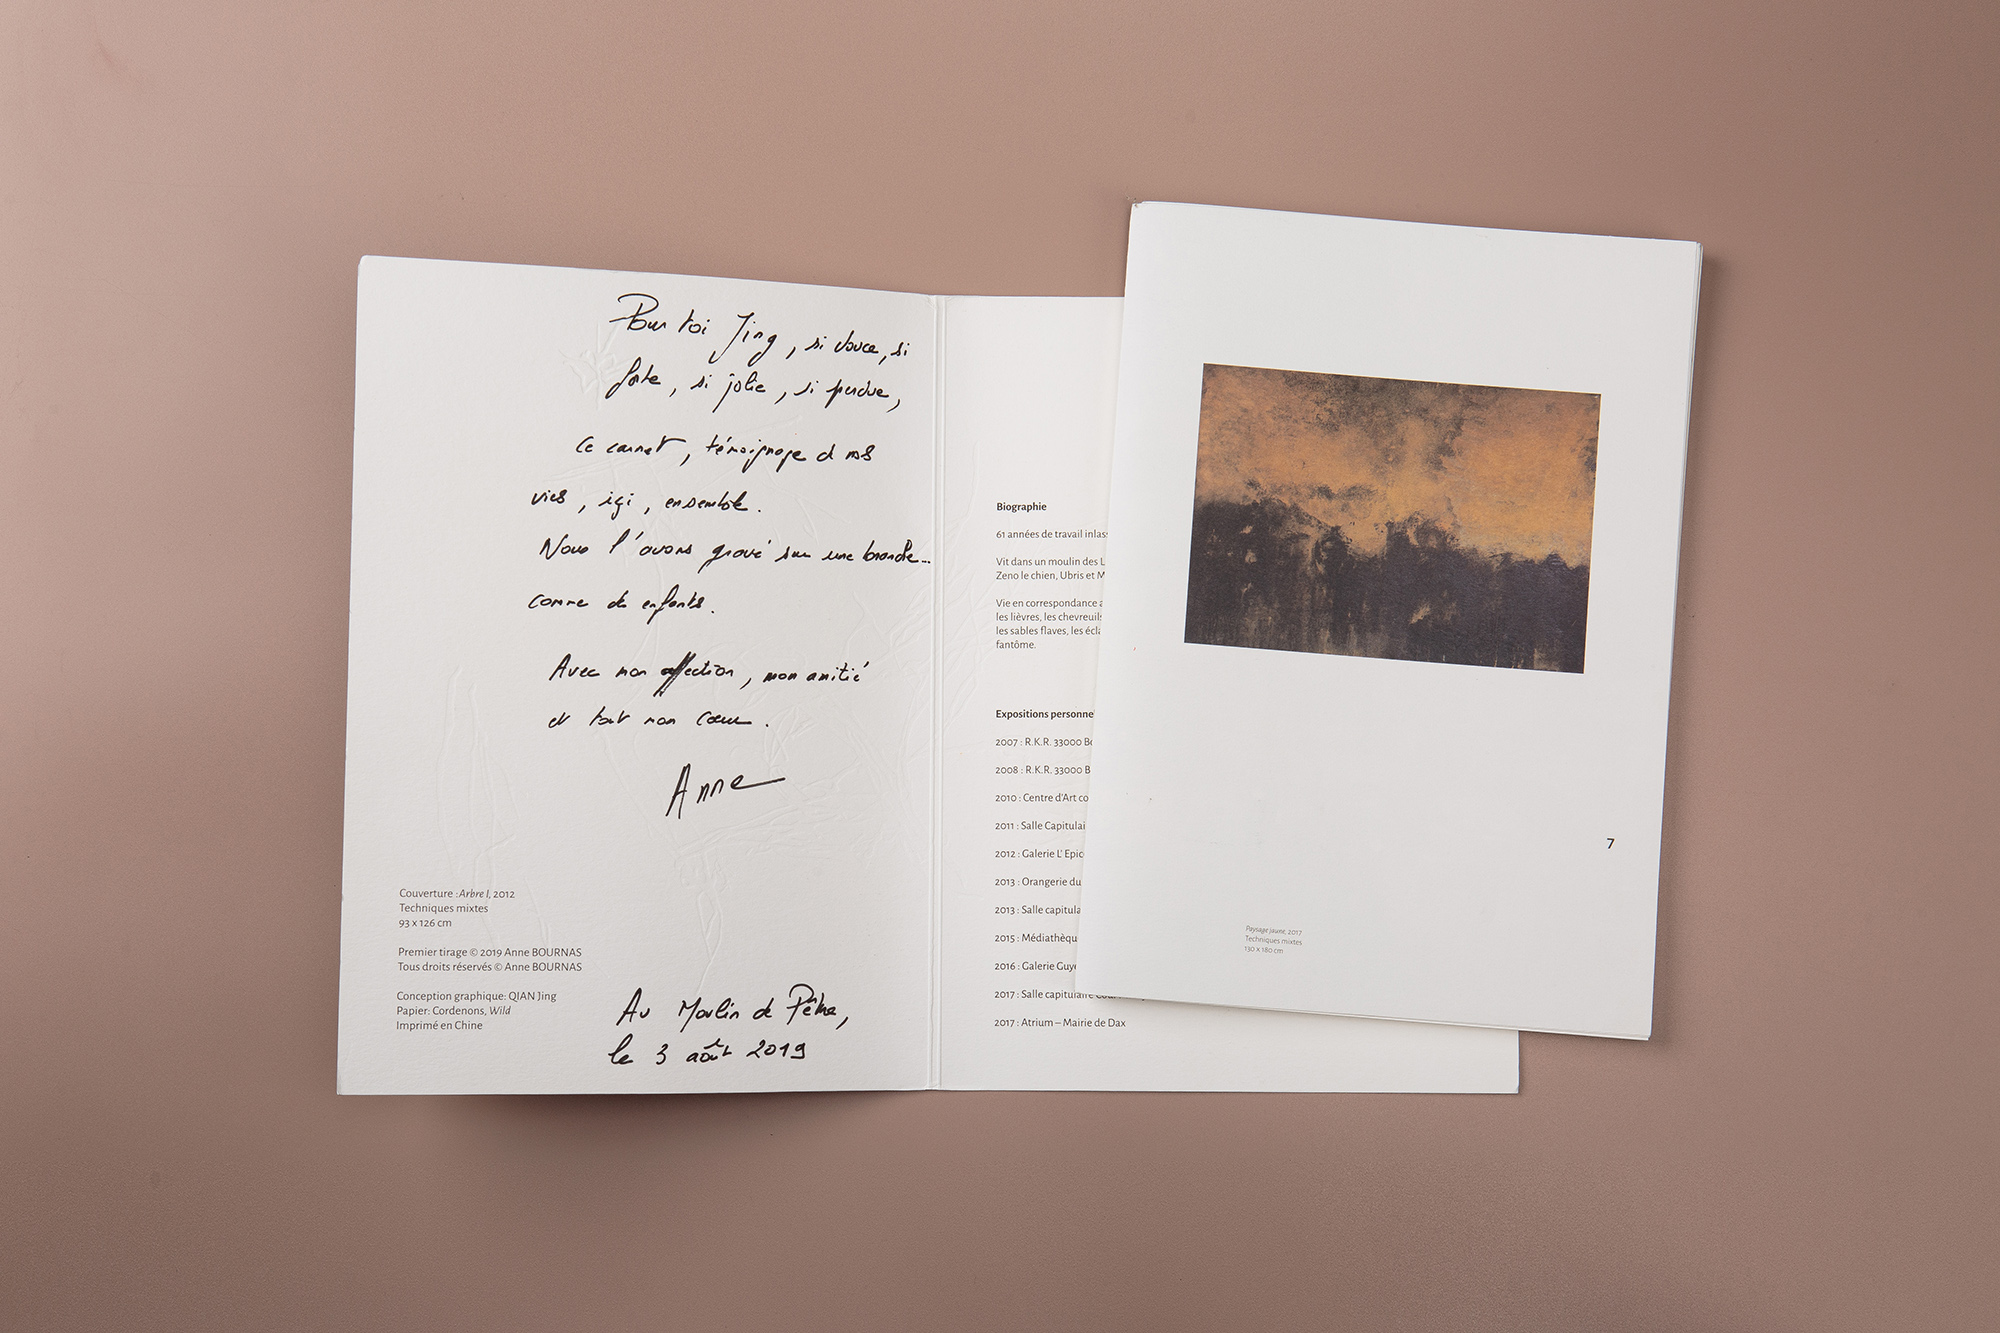 Pour toi Jing, si douce, si
forte, si jolie, si perdue,
ce carnet, témoignage de nos
vies, içi, ensemble.
Nous l'avons gravé sur une branche...
comme des enfants.
Avec mon affection, mon amitié
et tout mon cœur.
Anne
Couverture : Arbre I, 2012
Techniques mixtes
93 x 126 cm
Premier tirage © 2019 Anne BOURNAS
Tous droits réservés © Anne BOURNAS
Conception graphique: QIAN Jing
Papier: Cordenons, Wild
Imprimé en Chine
Au Moulin de
le 3 août 2019
Biographie
61 années de travail inlas
Vit dans un moulin des L
Zeno le chien, Ubris et M
Vie en correspondance a
les lièvres, les chevreuils
les sables flaves, les écla
fantôme.
Expositions personnel
2007 : R.K.R. 33000 Bo
2008 : R.K.R. 33000 B
2010 : Centre d'Art co
2011 : Salle Capitulai
2012 : Galerie L' Epic
2013 : Orangerie du
2013 : Salle capitula
2015 : Médiathèqu
2016 : Galerie Guy
2017 : Salle capitulaire
2017 : Atrium – Mairie de Dax
7
Paysage jaune, 2017
Techniques mixtes
130 x 180 cm